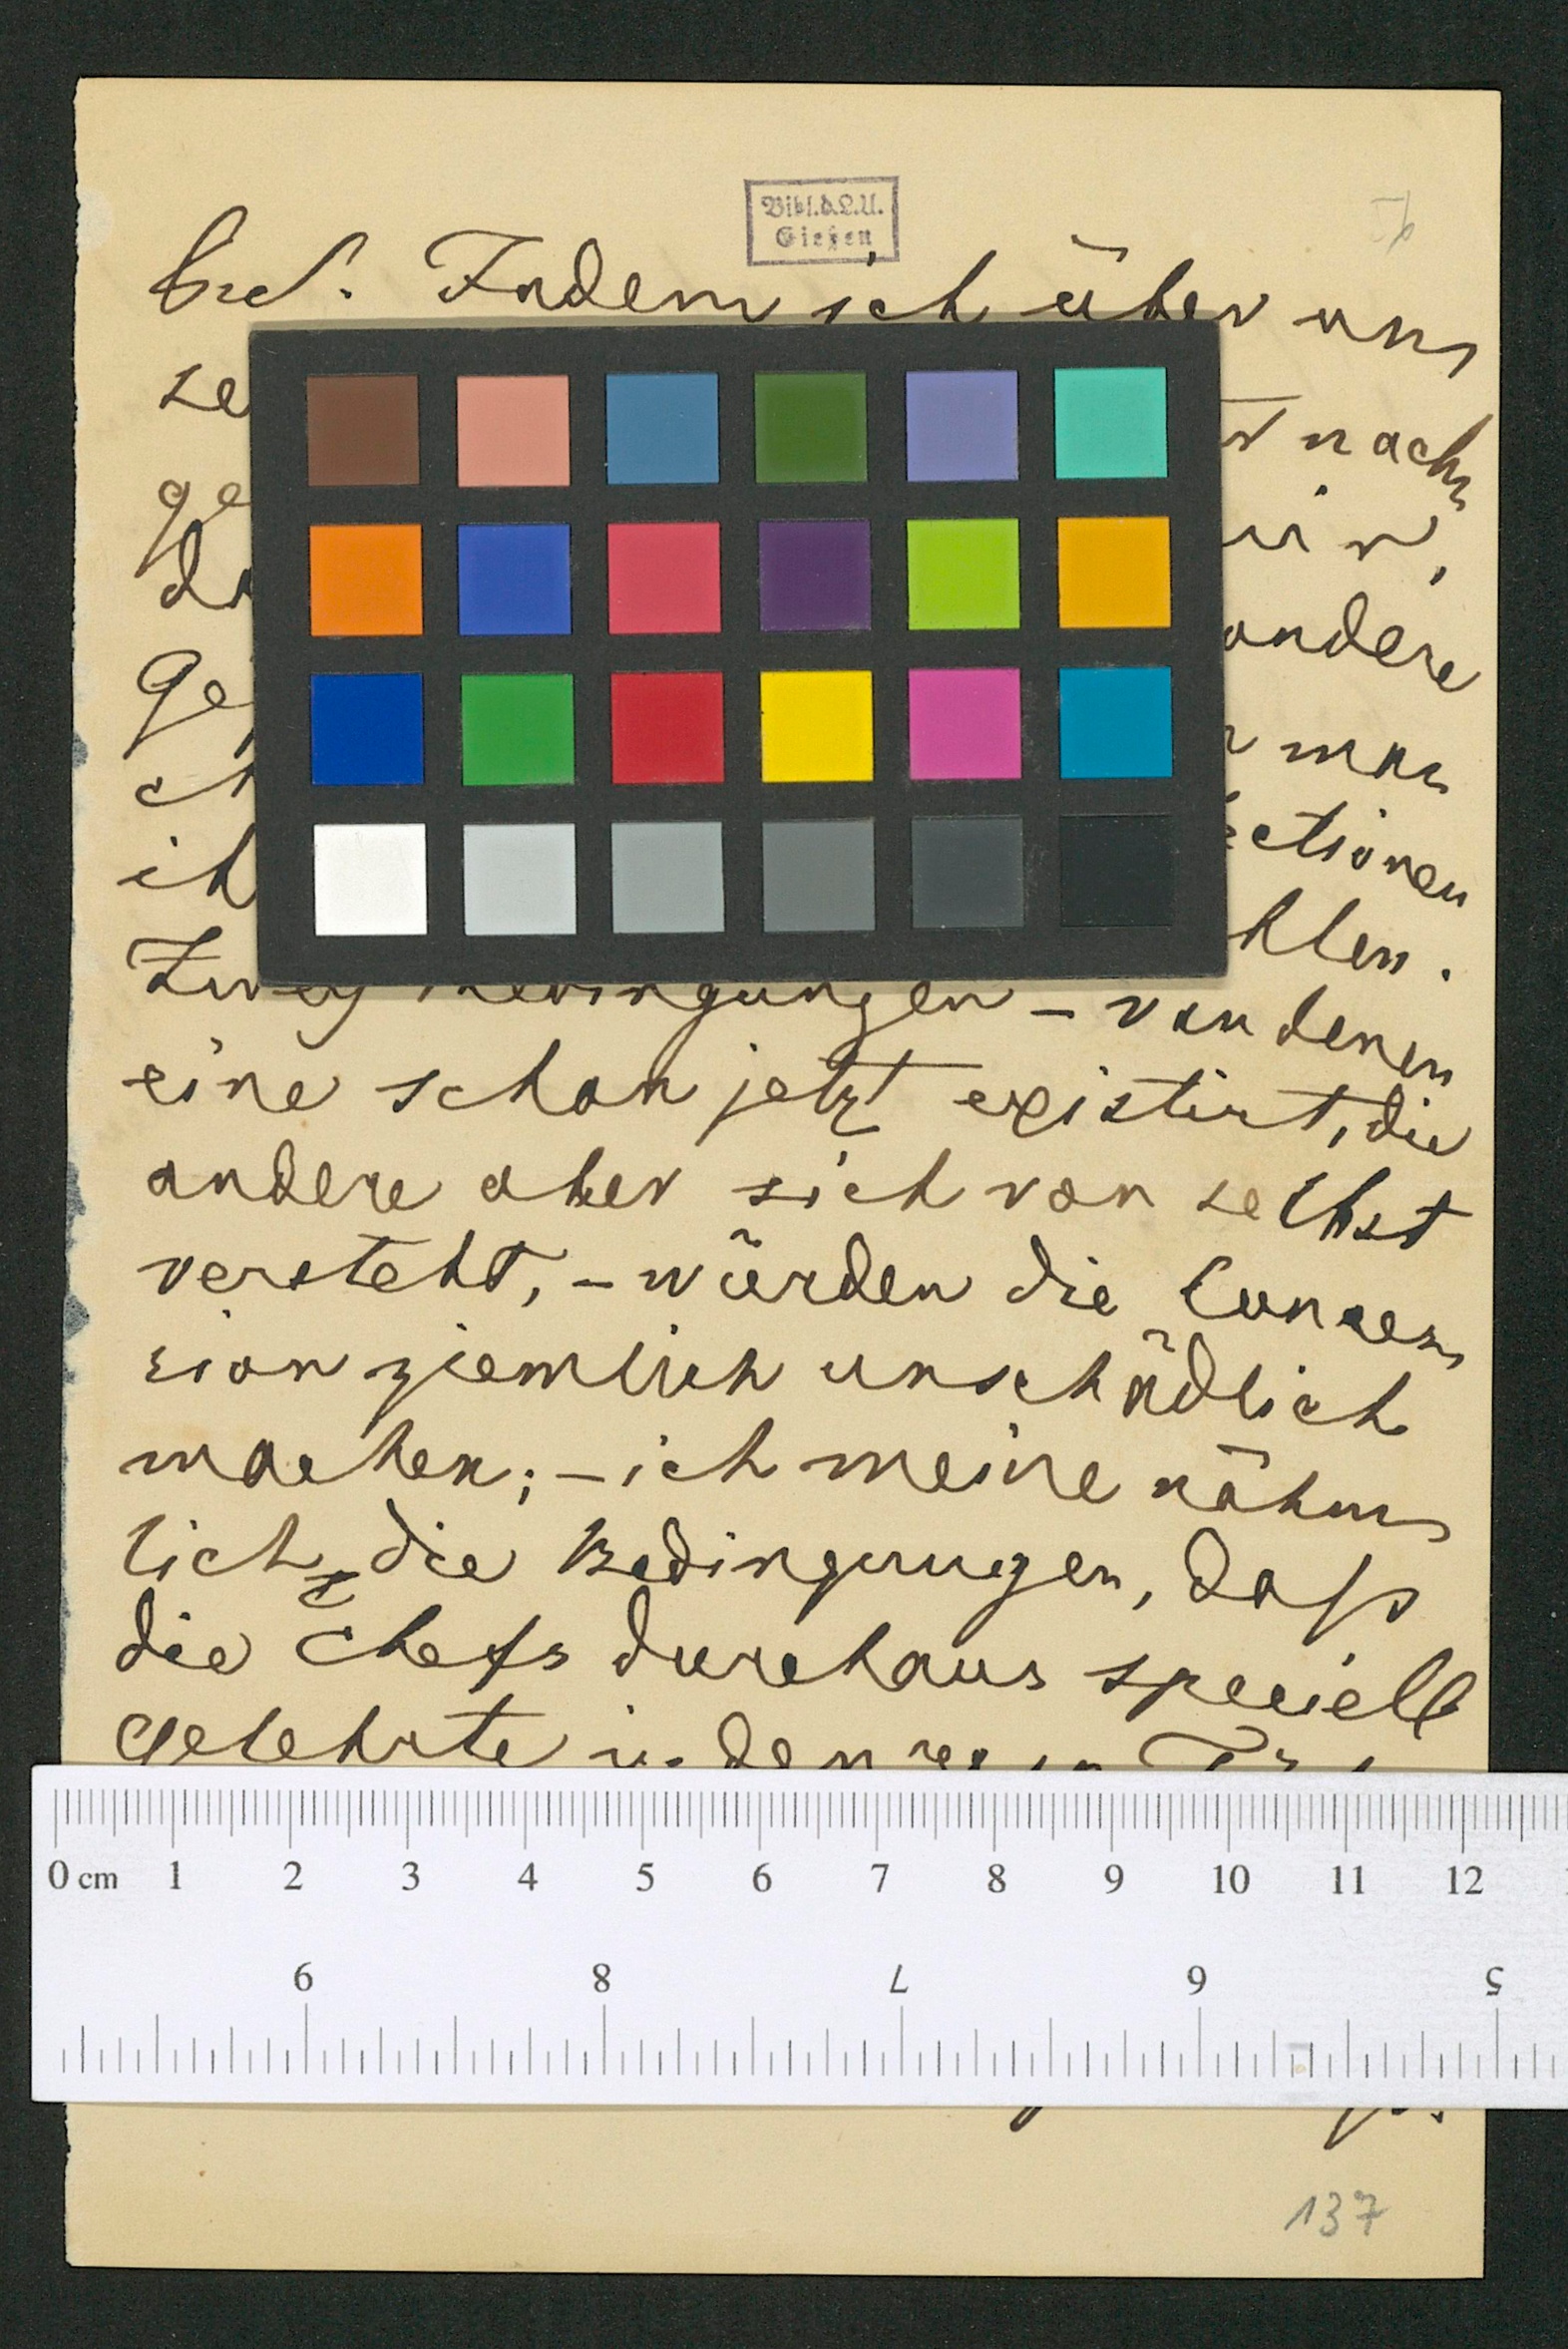 Bibl.d.L.U.
Gießen
Indem ich über un
se nach
ge
andere
Ge man
ctionen
ih hlen.
Zwey Bedingungen – von denen
eine schon jetzt existirt, die
andere aber sich von selbst
versteht, – würden die Conces
sion ziemlich unschädlich
machen; – ich meine nähm
lich die Bedingungen, daß
die Chefs durchaus speciell
gelehrte
0 cm 1 2 3 4 5 6 7 8 9 10 11 12
9 8 7 6 5
137